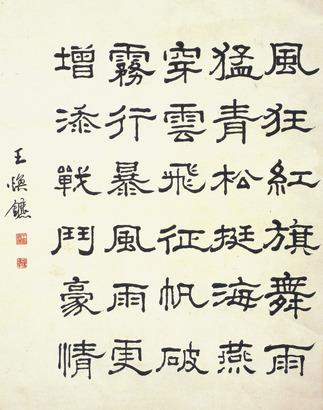 風狂紅旗舞雨
猛青松挺海燕
穿雲飛征帆破
霧行暴風雨更
增添戰鬥豪情
王煥鑣